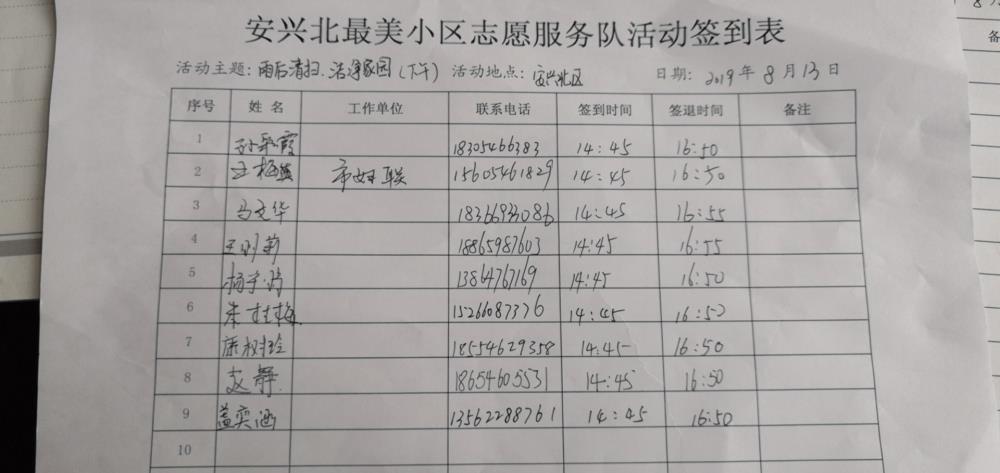 安兴北最美小区志愿服务队活动签到表
活动主题：雨后清扫.洁净家园（下午） 活动地点：安兴北区 日期：2019年8月13日
序号 姓名 工作单位 联系电话 签到时间 签退时间 备注
1 霞 18305466383 14:45 16:50
2 王梅 市妇联 15605461829 14:45 16:50
3 马文华 18366933086 14:45 16:55
4 王明莉 18865987603 14:45 16:55
5 杨 13864767169 14:45 16:50
6 朱桂梅 15266087376 14:45 16:50
7 康 18554629358 14:45 16:50
8 赵静 18654605531 14:45 16:50
9 盖奕涵 13562288761 14:45 16:50
10
8月
备